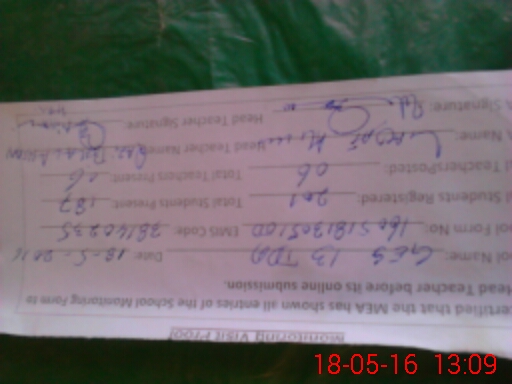 Monitoring Visit Proof
certified that the MEA has shown all entries of the School Monitoring Form to
Head Teacher before its online submission.
ool Name: GES 13 TDA Date: 18-5-2016
ool Form No: EMIS Code: 38140235
al Students Registered: 201 Total Students Present: 187
al TeachersPosted: 06 Total Teachers Present: 06
A Name: Head Teacher Name:
A Signature: Head Teacher Signature:
18-05-16 13:09